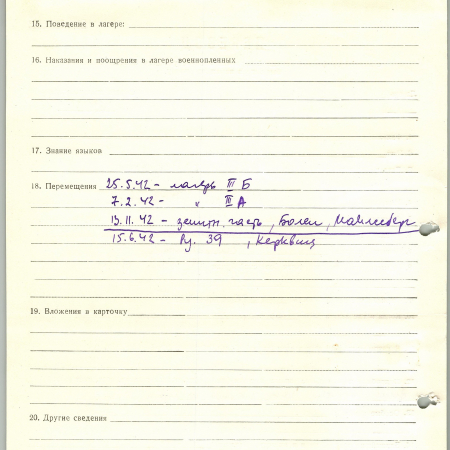 15. Поведение в лагере:
16. Наказания и поощрения в лагере военнопленных
17. Знание языков
18. Перемещения 25.5.42 - лагерь III Б
7.2.42 - " III А
13.11.42 - зенитн. часть, Болен,
15.6.42 - Ру. 39, Керквиц
19. Вложения в карточку
20. Другие сведения